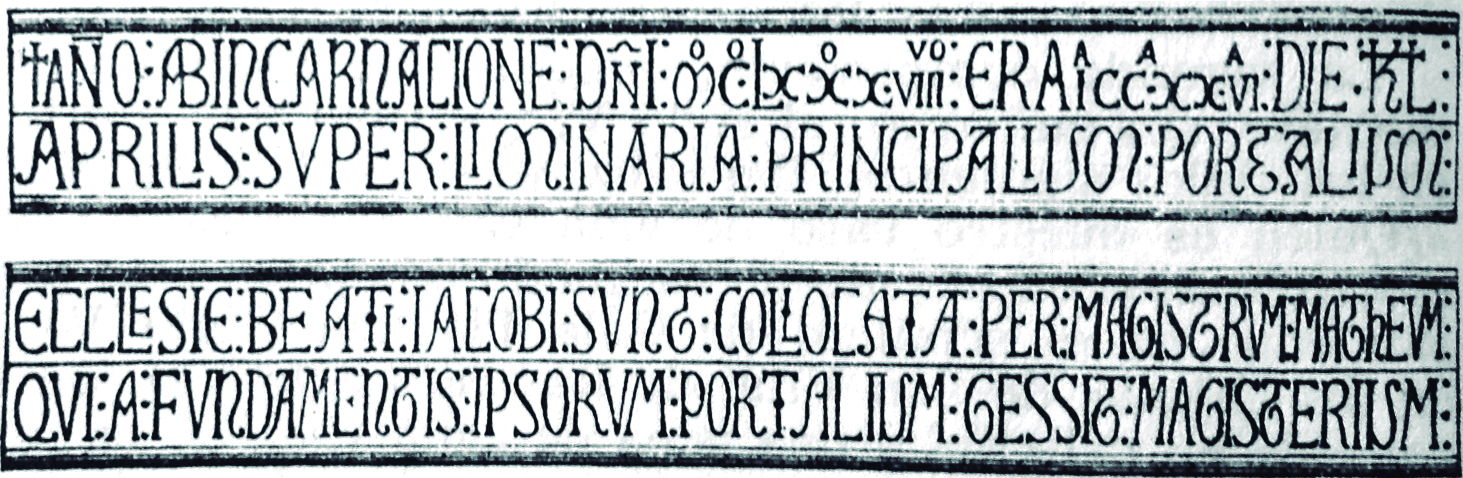 ✝ANÑO: AB INCARNACIONE: DÑI: Mº Cº LXXXº VIIIVº: ERA Iᴬ CCᴬ XXᴬ VIᴬ: DIE K̅L̅:
APRILIS: SVPER: LIMINARIA: PRINCIPALIUM: PORTALIUM:
ECCLESIE: BEATI: IACOBI: SVNT: COLLOCATA: PER: MAGISTRVM: MATHEVM:
QVI: A: FVNDAMENTIS: IPSORVM: PORTALIUM: GESSIT: MAGISTERIUM: